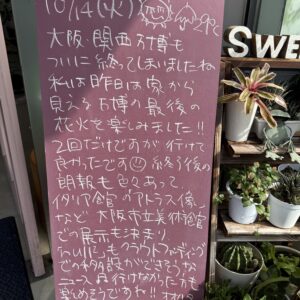 10/14(火)
大阪・関西万博も
ついに終ってしまいましたね
私は昨日は家から
見える万博の最後の
花火を楽しみました!!
2回だけですが行けて
良かったです 終了後の
朗報も色々あって
イタリア館の『アトラス像』
など大阪市立美術館
での展示も決まり
null²もクラウドファンディング
での移設ができそうな
ニュース 行けなかった方も
楽しめそうですね!!
SWE